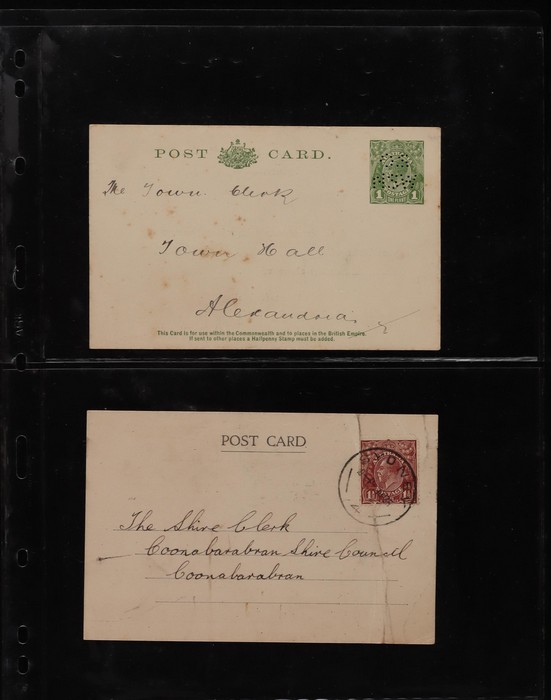 POST CARD.
The Town Clerk
Town Hall
Alexandria
This Card is for use within the Commonwealth and to places in the British Empire.
If sent to other places a Halfpenny Stamp must be added.
POST CARD
The Shire Clerk
Coonabarabran Shire Council
Coonabarabran